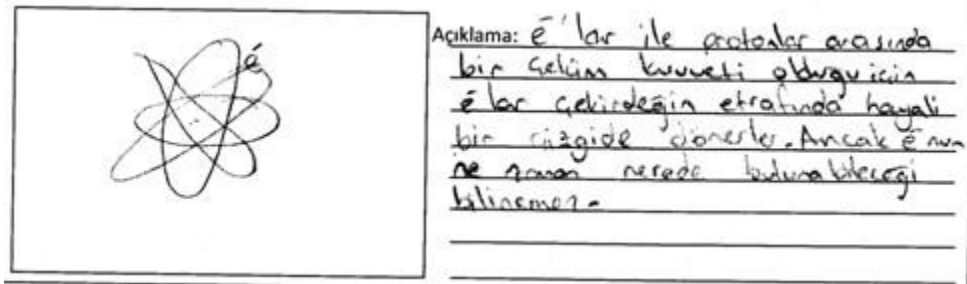 é
Açıklama: é'lar ile protonlar arasında
bir çekim kuvveti olduğu için
é lar çekirdeğin etrafında hayali
bir çizgide dönerler. Ancak é nun
ne zaman nerede bulunabileceği
bilinemez.